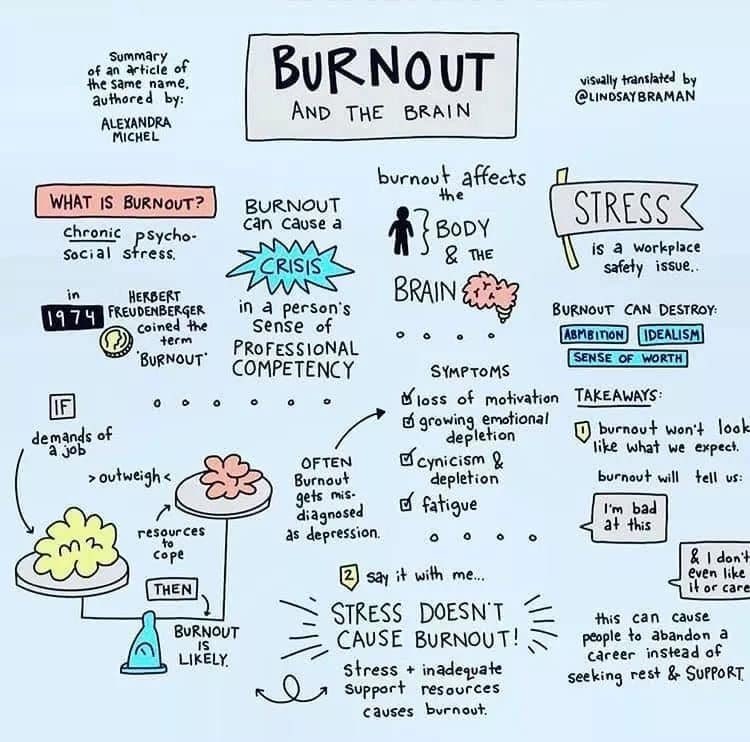 Summary
of an article of
the same name,
authored by:
ALEXANDRA
MICHEL
BURNOUT
AND THE BRAIN
visually translated by
@LINDSAYBRAMAN
WHAT IS BURNOUT?
chronic psycho-
social stress.
in
1974
HERBERT
FREUDENBERGER
coined the
term
'BURNOUT'
BURNOUT
can cause a
CRISIS
in a person's
sense of
PROFESSIONAL
COMPETENCY
burnout affects
the
BODY
& THE
BRAIN
STRESS
is a workplace
safety issue..
BURNOUT CAN DESTROY:
ABMBITION
IDEALISM
SENSE OF WORTH
IF
demands of
a job
>outweigh<
resources
to
cope
THEN
BURNOUT
IS
LIKELY.
OFTEN
Burnout
gets mis-
diagnosed
as depression.
SYMPTOMS
loss of motivation
growing emotional
depletion
cynicism &
depletion
fatigue
TAKEAWAYS:
1 burnout won't look
like what we expect.
burnout will tell us:
I'm bad
at this
& I don't
even like
it or care
this can cause
people to abandon a
career instead of
seeking rest & SUPPORT
2 say it with me...
STRESS DOESN'T
CAUSE BURNOUT!
Stress + inadequate
support resources
causes burnout.